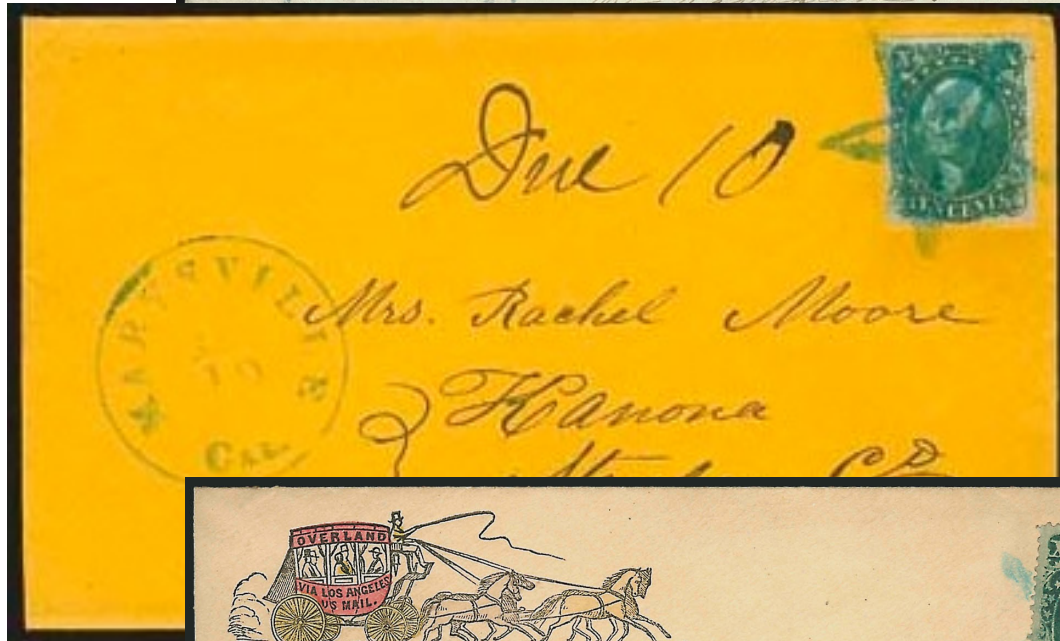 Due 10
TEN CENTS
MARYSVILLE
10
CAL.
Mrs. Rachel Moore
Kanona
OVERLAND
VIA LOS ANGELES
U·S MAIL.